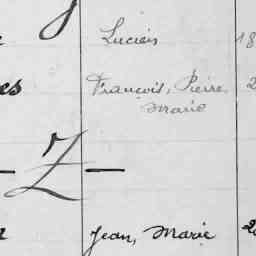 Lucien 18
es François, Pierre, 2
Marie
— Z —
Jean, Marie 2